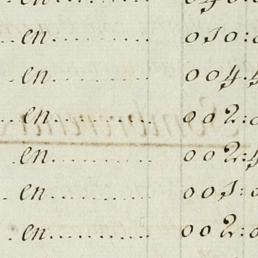 en.......... 010:
en.......... 004.4
en.......... 002:
en.......... 002:4
en.......... 001:
en.......... 002: